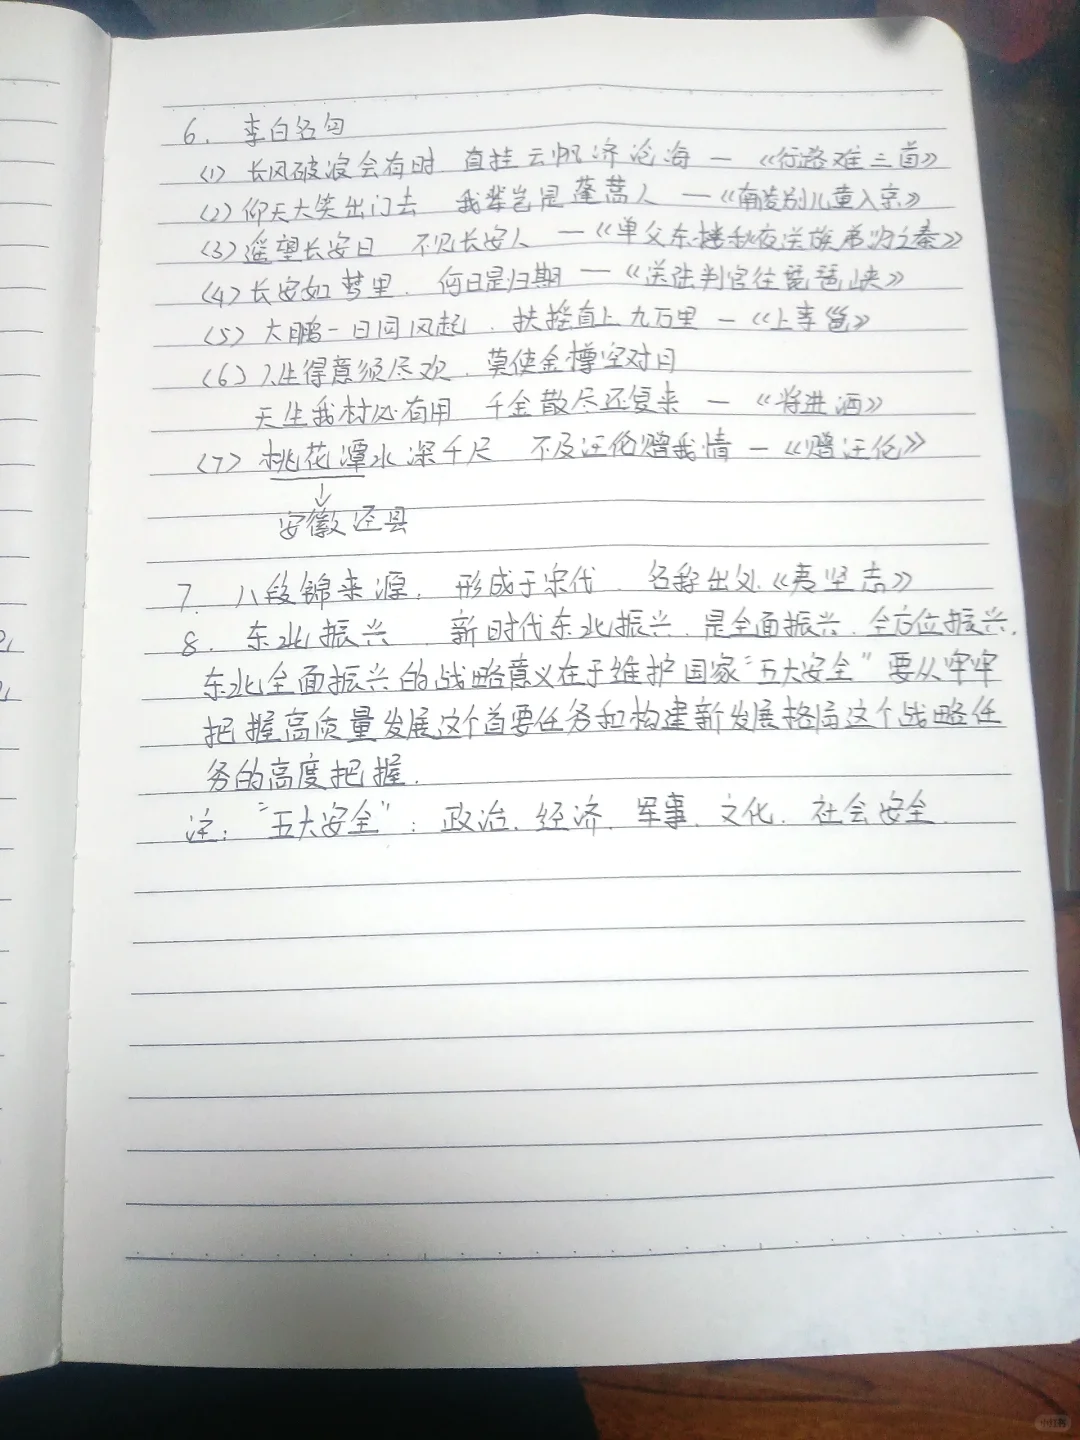 6. 李白名句
(1) 长风破浪会有时 直挂云帆济沧海 — 《行路难三首》
(2) 仰天大笑出门去 我辈岂是蓬蒿人 — 《南陵别儿童入京》
(3) 遥望长安日 不见长安人 — 《单父东楼秋夜送族弟沈之秦》
(4) 长安如梦里. 何日是归期 — 《送陆判官往琵琶峡》
(5) 大鹏一日同风起. 扶摇直上九万里 — 《上李邕》
(6) 人生得意须尽欢. 莫使金樽空对月
天生我材必有用 千金散尽还复来 — 《将进酒》
(7) 桃花潭水深千尺 不及汪伦赠我情 — 《赠汪伦》
↓
安徽泾县
7. 八段锦来源. 形成于宋代. 名称出处《夷坚志》
8. 东北振兴 新时代东北振兴. 是全面振兴. 全方位振兴.
东北全面振兴的战略意义在于维护国家“五大安全” 要从牢牢
把握高质量发展这个首要任务和构建新发展格局这个战略任
务的高度把握.
注: “五大安全”: 政治. 经济. 军事. 文化. 社会安全.
小红书